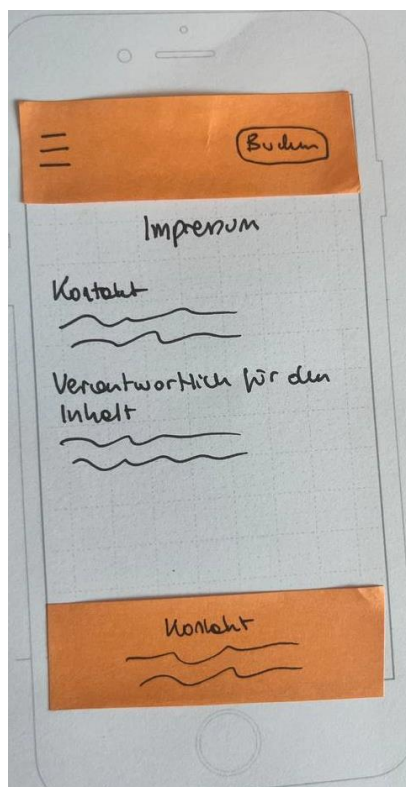 Buchen
Impressum
Kontakt
Verantwortlich für den
Inhalt
Kontakt